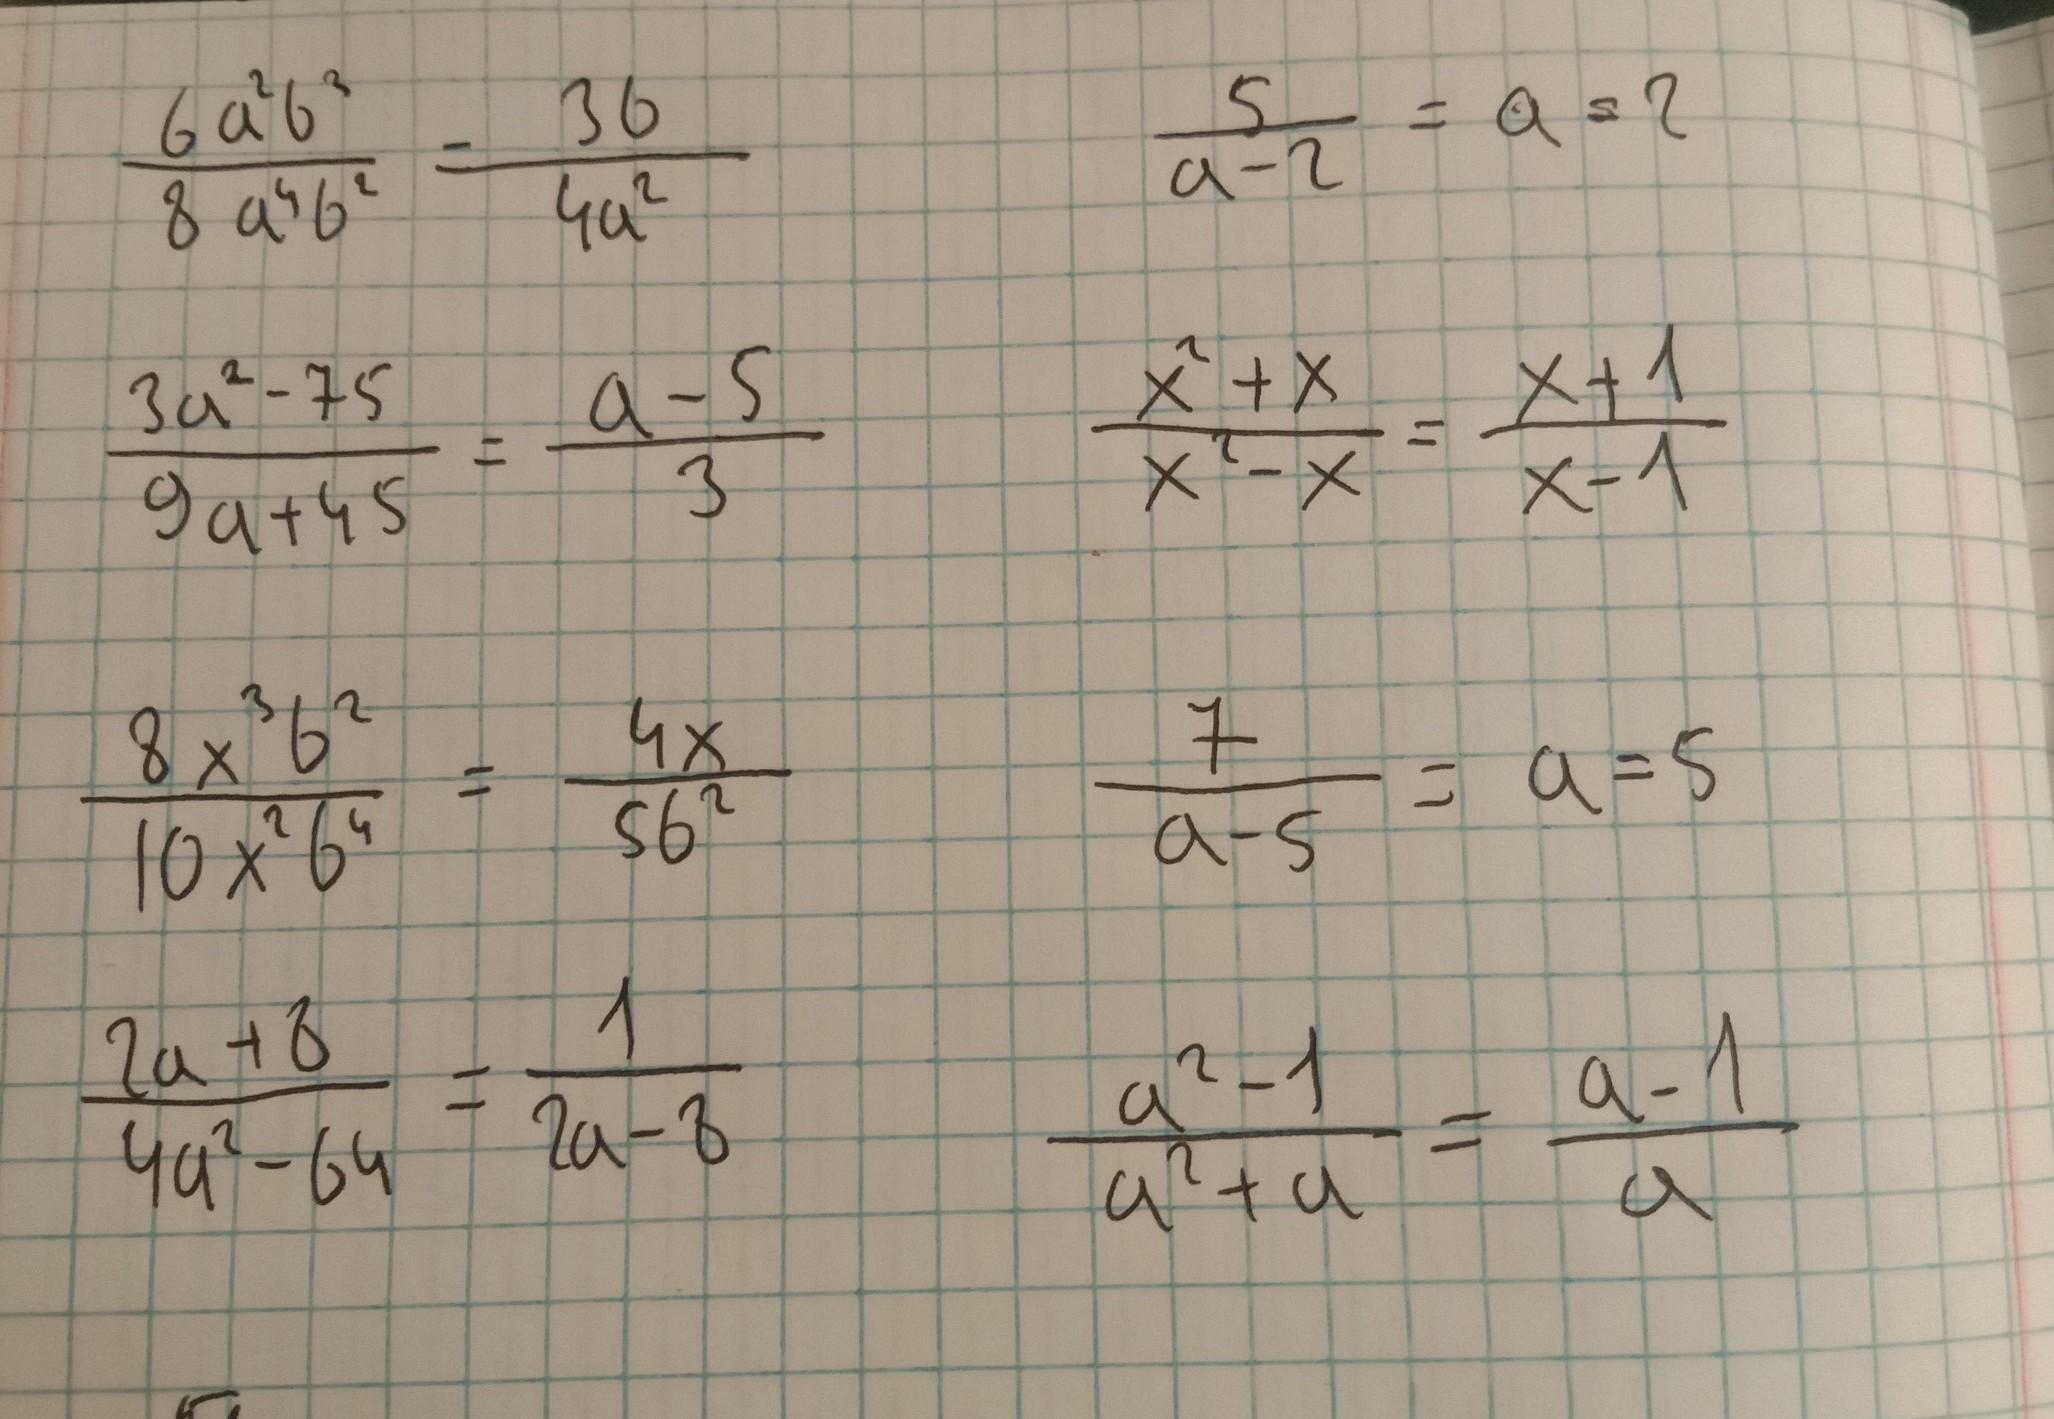 6a²b³/8a⁴b² = 3b/4a²    5/(a-2) = a = 2
(3a²-75)/(9a+45) = (a-5)/3    (x²+x)/(x²-x) = (x+1)/(x-1)
8x³b²/10x²b⁴ = 4x/5b²    7/(a-5) = a = 5
(2a+8)/(4a²-64) = 1/(2a-8)    (a²-1)/(a²+a) = (a-1)/a